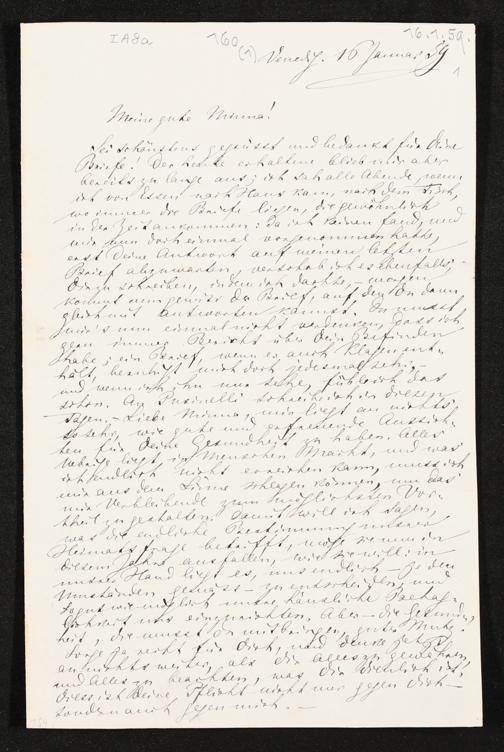 IA8a 160 (1) 16.1.59.
Venedig. 16 Januar 59
1
Meine gute Minna!
Sei schönstens gegrüsst und bedankt für Deine
Briefe! Der heute erhaltene blieb mir aber
bereits zu lange aus; ich sah alle Abende, wenn
ich von Essen nach Haus kam, nach dem Tisch,
wo immer die Briefe liegen, die gewöhnlich
in der Zeit ankommen: Da ich keinen fand, und
mir nun doch einmal vorgenommen hatte,
erst Deine Antwort auf meinen letzten
Brief abzuwarten, verschob ich es ebenfalls
Dir zu schreiben, indem ich dachte, – morgen
kommt nun gewiss der Brief, auf den Du dann
gleich mit antworten kannst. Du musst
mir's nun einmal nicht verdenken, dass ich
gern immer Bericht über Dein Befinden
habe; ein Brief, wenn er auch Klagen ent-
hält, beruhigt mich doch jedesmal sehr,
und wenn ich ihn nur sehe, fühle ich das
schon. An Pusinelli schreibe ich in diesen
Tagen. – Liebe Minna, mir liegt an nichts
so sehr, wie gute und erfreuende Aussich-
ten für Deine Gesundheit zu haben. Alles
Uebrige liegt in Menschen Macht, und was
ich endlich nicht erreichen kann, muss ich
mir aus dem Sinne schlagen können, um das
mir Verbleibende zum möglichsten Vor-
theil zu gestalten. Damit will ich sagen,
was die endliche Bestimmung unsrer
Heimathsfrage betrifft, möge sie nun in
diesem Jahre ausfallen, wie sie will: in
unsrer Hand liegt es, uns endlich – je den
Umständen gemäss – zu entscheiden, und
so gut wie möglich unsre häusliche
uns einzurichten. Aber – die Gesund-
heit, die musst Du mitbringen, gute Mutz.
Sorge ja recht für Dich, und denk jetzt
an nichts weiter, als Dir Alles zu gewähren,
und Alles zu beachten, was Dir dienlich ist.
Diess ist Deine Pflicht nicht nur gegen Dich –
sondern auch gegen mich. –